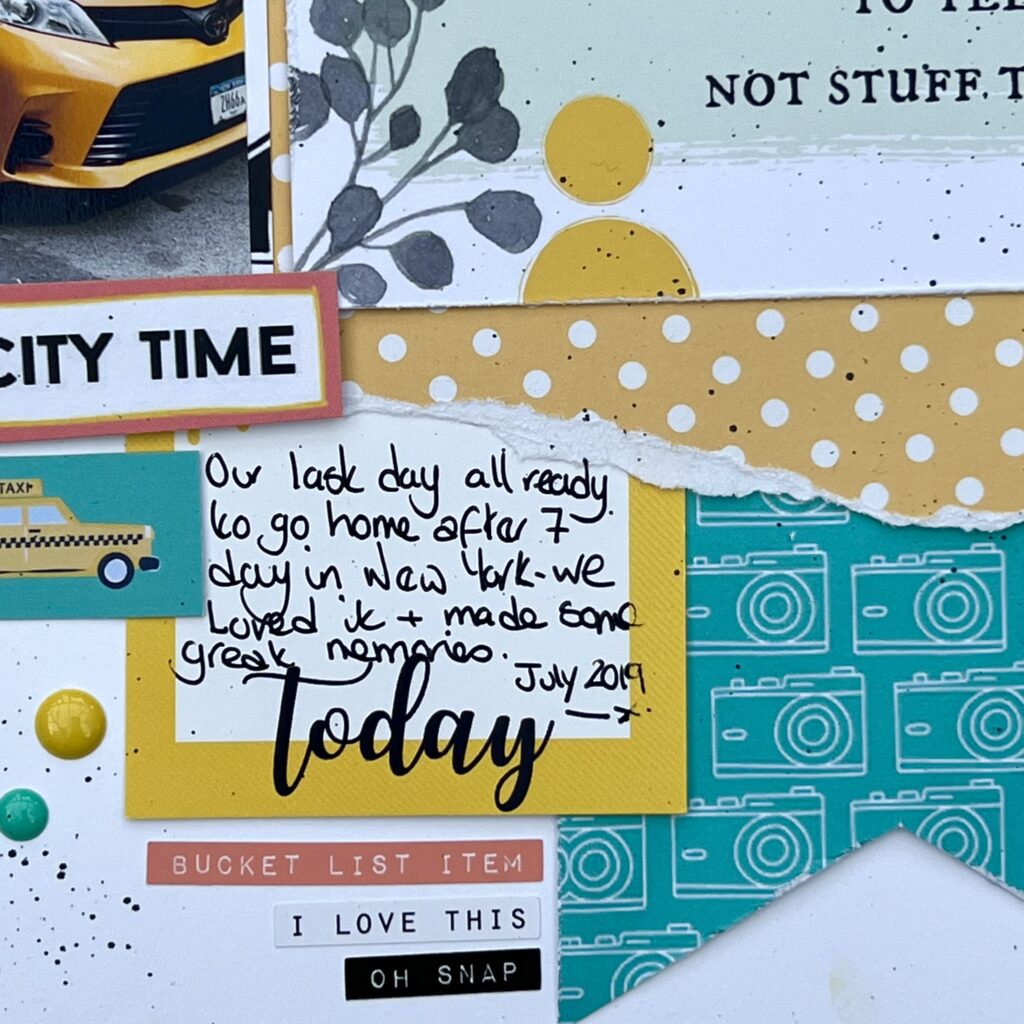 NOT STUFF.
2H66
CITY TIME
TAXI
Our last day all ready
to go home after 7
day in New York - we
Loved it + made some
great memories.
July 2019
x
today
BUCKET LIST ITEM
I LOVE THIS
OH SNAP